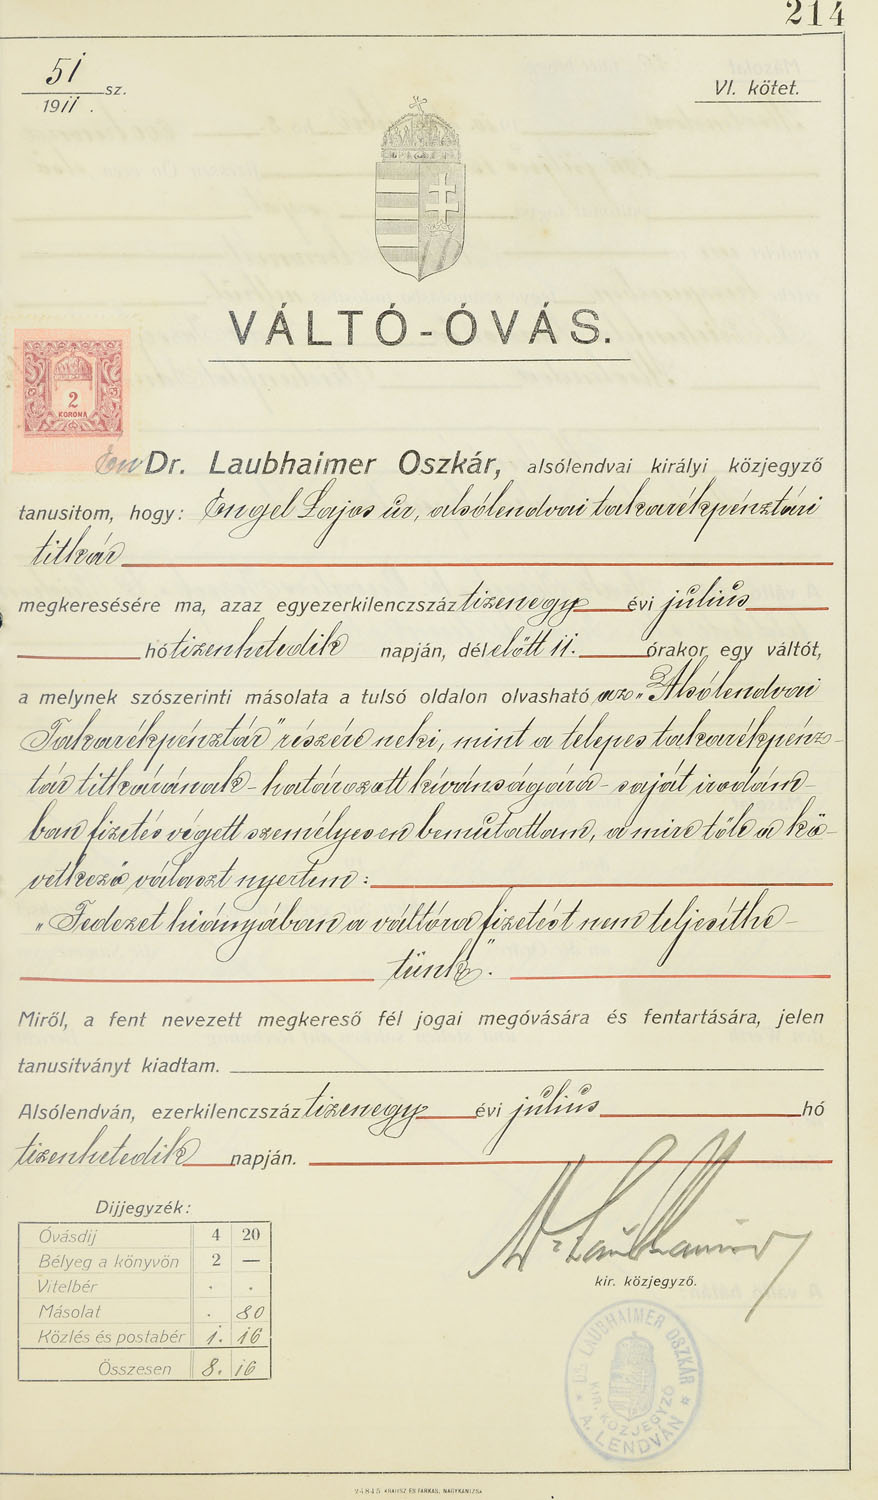 214
51
1911. sz.
VI. kötet.
VÁLTÓ-ÓVÁS.
2
KORONA
Én Dr. Laubhaimer Oszkár, alsólendvai királyi közjegyző
tanusitom, hogy: Engel Lajos úr, alsólendvai takarékpénztári
titkár
megkeresésére ma, azaz egyezerkilenczszáz tizenegy évi július
hó tizenhetedik napján, délelőtt 11. órakor, egy váltót,
a melynek szószerinti másolata a tulsó oldalon olvasható, az „Alsólendvai
Takarékpénztár" részére neki, mint a telepes takarékpénz-
tár titkárának - határozott kívánságára - saját irodám-
ban fizetés végett személyesen bemutattam, a mire tőle a kö-
vetkező választ nyertem:
„Fedezet hiányában a váltóra fizetést nem teljesíthe-
tünk".
Miről, a fent nevezett megkereső fél jogai megóvására és fentartására, jelen
tanusítványt kiadtam.
Alsólendván, ezerkilenczszáz tizenegy évi július hó
tizenhetedik napján.
Dijjegyzék:
Óvásdij 4 20
Bélyeg a könyvön 2 —
Vitelbér . .
Másolat . 80
Közlés és postabér 1. 16
Összesen 8. 16
Dr Laubhaimer
kir. közjegyző.
DR. LAUBHAIMER OSZKÁR
KIR. KÖZJEGYZŐ
A. LENDVÁN
24845 KRAUSZ ÉS FARKAS, NAGYKANIZSA